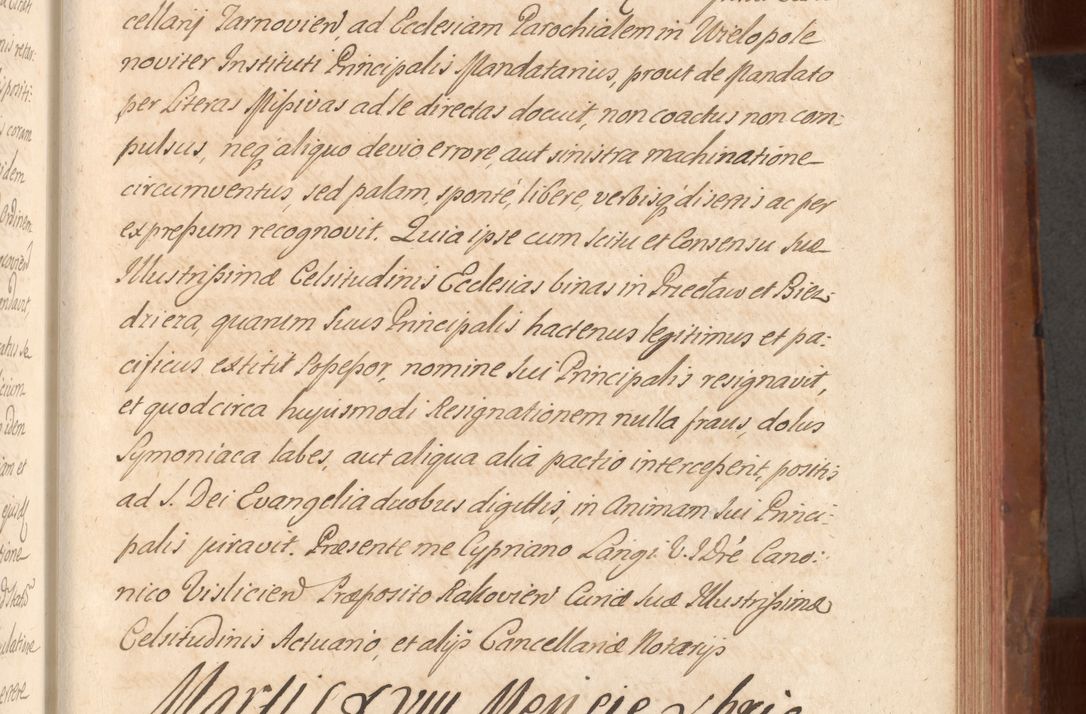 cellarij Tarnovien, ad Ecclesiam Parochialem in Wielopole
noviter Instituti Principalis Mandatarius, prout de Mandato
per Literas Missivas ad se directas docuit, non coactus non com:
pulsus, neq aliquo devio, errore, aut sinistra machinatione
circumventus, sed palam, sponté, libere, verbisq disertis ac per
expressum recognovit. Quia ipse cum scitu et Consensu Suæ
Illustrissimæ Celsitudinis Ecclesias binas in Przecław et Bież:
driera, quarum Suus Principalis hactenus legitimus et pa:
cificus extitit Possessor, nomine Sui Principalis resignavit,
et quod circa hujusmodi Resignationem nulla fraus, dolus
Symoniaca labes, aut aliqua alia pactio intercesserit, positis
ad S. Dei Evangelia duobus digittis, in Animam Sui Princi:
palis juravit. Præsente me Cypriano Langi V. I. Dré Cano:
nico Visliciens Præposito Rakovien Curiæ Suæ Illustrissimæ
Celsitudinis Actuario, et alijs Cancellariæ Notarijs